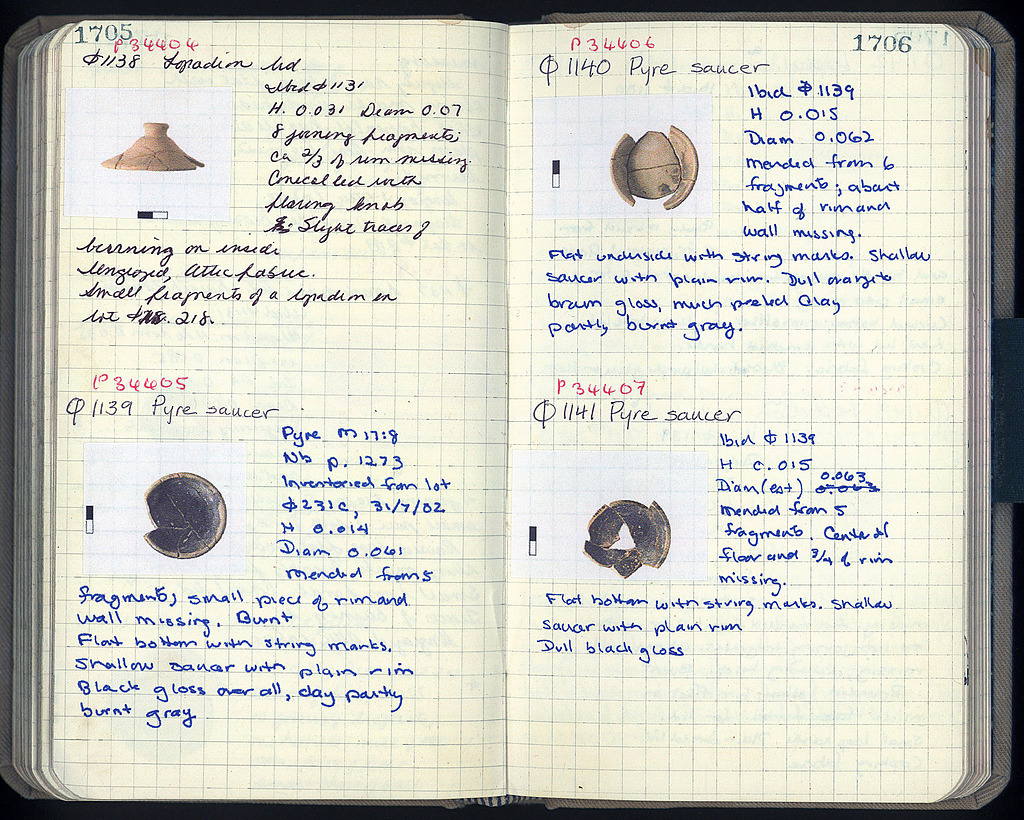 1705
P 34404
Φ1138 Lopadion lid
Ibid Φ1131
H. 0.031 Diam 0.07
8 joining fragments;
ca 2/3 of rim missing.
Conical lid with
flaring knob
Slight traces of
burning on inside
Unglazed, Attic fabric.
Small fragments of a lopadion in
lot Φ 218.
P 34405
Φ1139 Pyre saucer
Pyre M 17:8
Nb p. 1273
Inventoried from lot
Φ231c, 31/7/02
H 0.014
Diam 0.061
mended from 5
fragments; small piece of rim and
wall missing. Burnt
Flat bottom with string marks.
Shallow saucer with plain rim
Black gloss over all, clay partly
burnt gray
P 34406
1706
Φ1140 Pyre saucer
Ibid Φ1139
H 0.015
Diam 0.062
mended from 6
fragments; about
half of rim and
wall missing.
Flat underside with string marks. Shallow
saucer with plain rim. Dull orange to
brown gloss, much peeled Clay
partly burnt gray.
P 34407
Φ1141 Pyre saucer
Ibid Φ1139
H 0.015
Diam (est) 0.063
mended from 5
fragments. Center of
floor and 3/4 of rim
missing.
Flat bottom with string marks. Shallow
saucer with plain rim
Dull black gloss